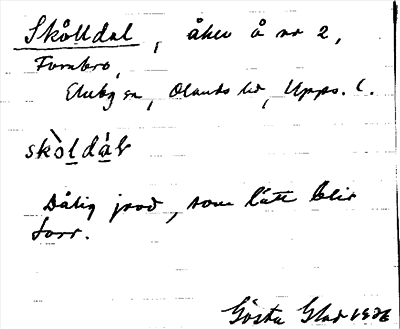 Skålldal, åker å nr 2,
Forsbro,
Ekeby sn, Olands hd, Upps. l.
skòldàl
Dålig jord, som lätt blir
torr.
Gösta